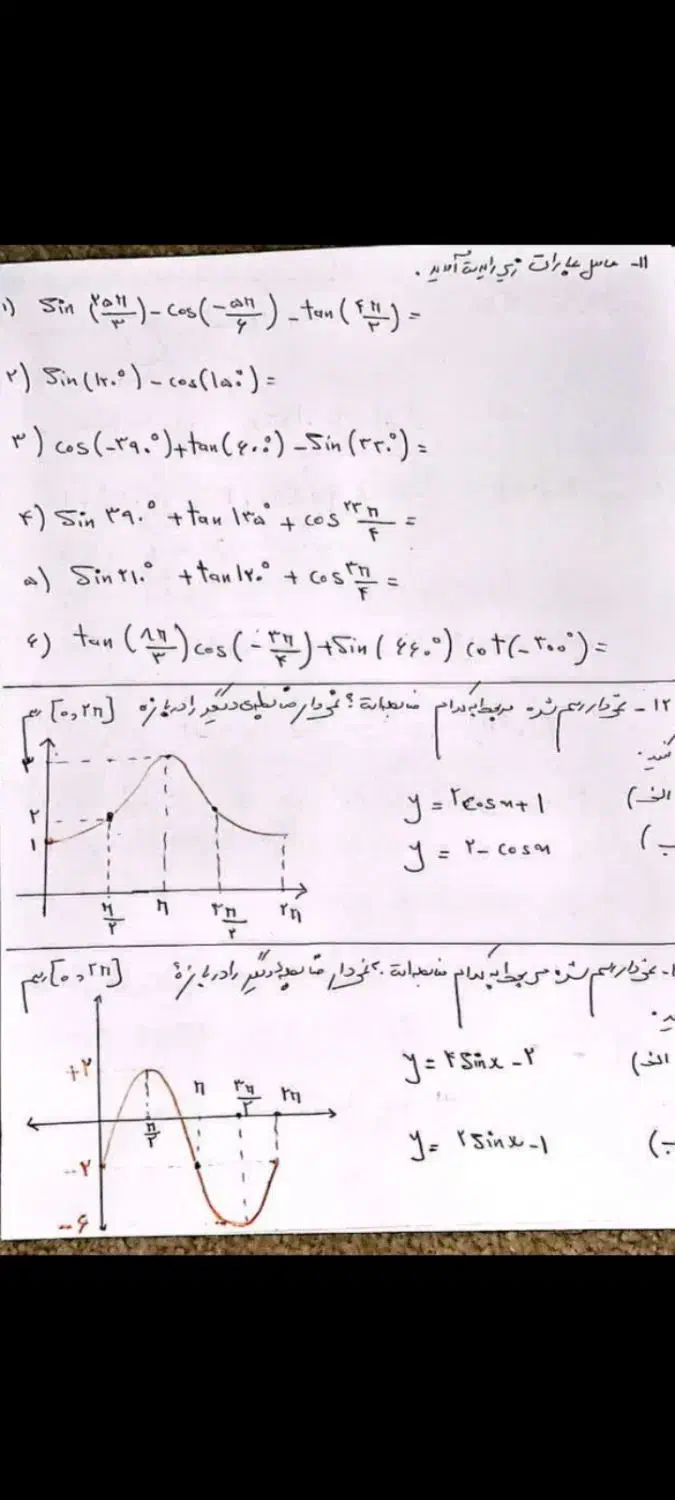 ۱۱- حاصل عبارات زیر را بدست آورید.
۱) Sin (۲۵π/۳) - cos(-۵π/۶) - tan(۴π/۳) =
۲) Sin(۱۲۰°) - cos(۱۵۰°) =
۳) cos(-۳۹۰°) + tan(۶۰۰°) - Sin(۳۳۰°) =
۴) Sin ۳۹۰° + tan ۱۳۵° + cos ۲۳π/۴ =
۵) Sin ۲۱۰° + tan ۱۲۰° + cos ۳π/۴ =
۶) tan (۸π/۳) cos(-۳π/۴) + Sin(۶۶۰°) cot(-۳۰۰°) =
۱۲- نمودار رسم شده مربوط به کدام ضابطه است؟ نمودار ضابطه‌ی دیگر را در بازه [۰,۲π] رسم
کنید.
الف) y = ۲cosx+۱
ب) y = ۲-cosx
۳
۲
۱
π/۲ π ۳π/۲ ۲π
نمودار رسم شده مربوط به کدام ضابطه است. نمودار ضابطه دیگر را در بازهٔ [۰,۲π] رسم
الف) y = ۴Sinx-۲
ب) y = ۲Sinx-۱
+۲
-۲
-۶
π/۲ π ۳π/۲ ۲π